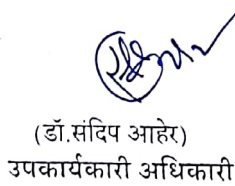 (डॉ.संदिप आहेर)
उपकार्यकारी अधिकारी